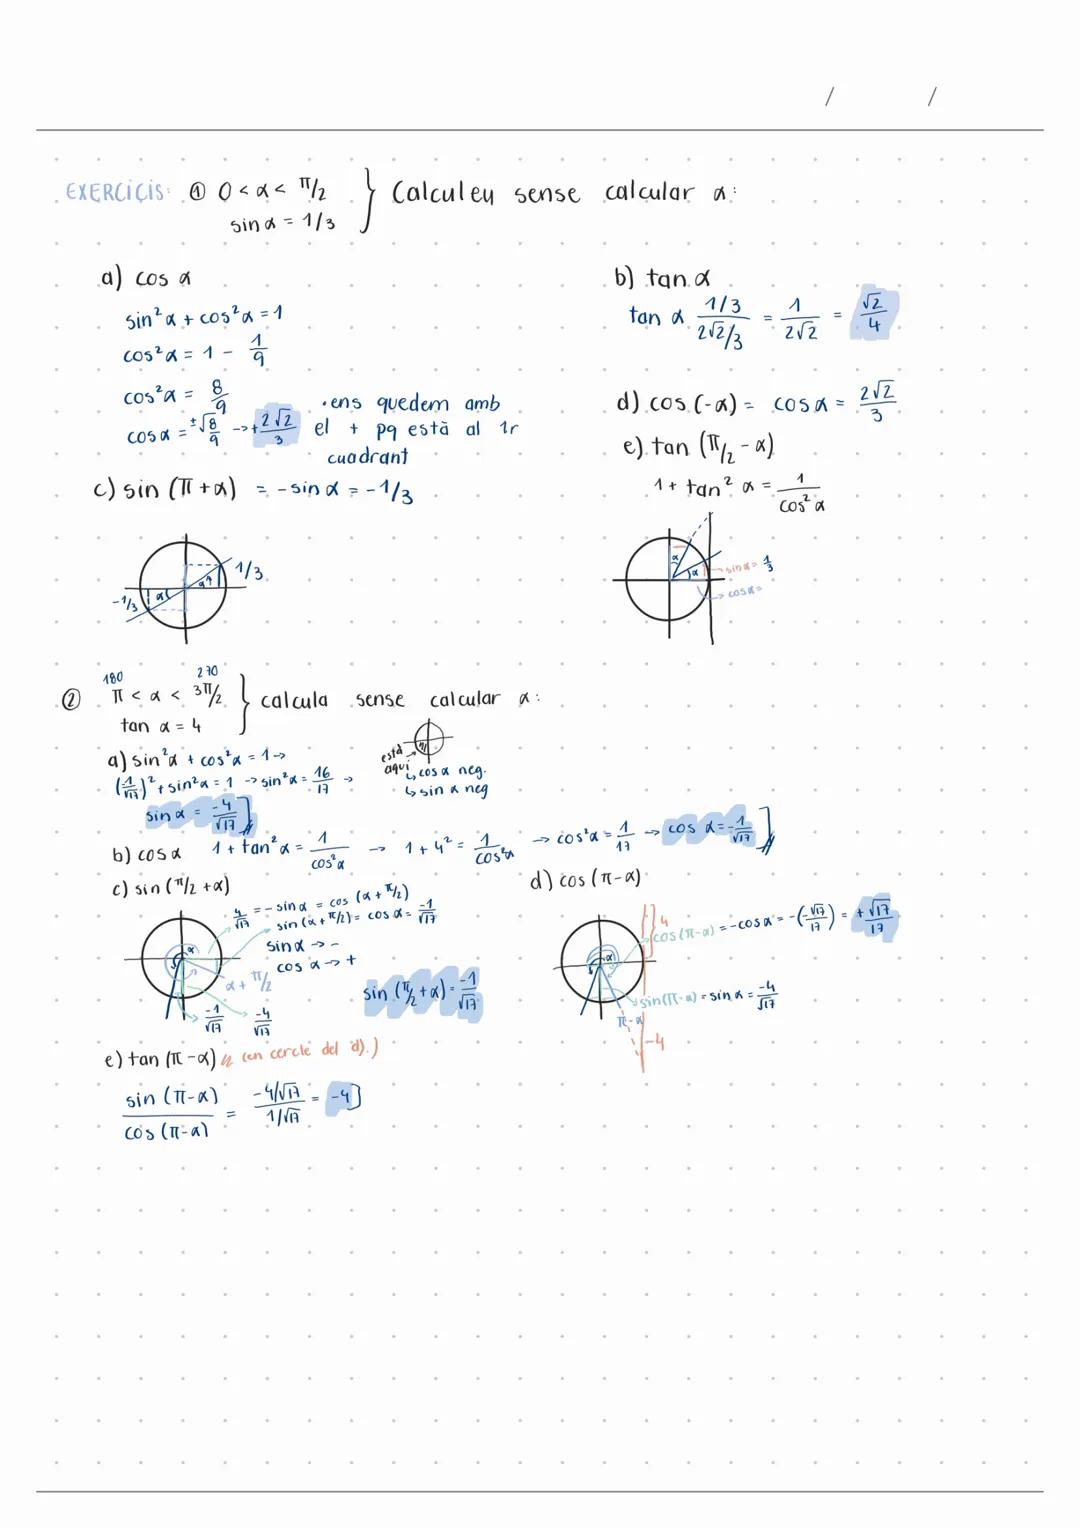 / /
EXERCICIS: ① 0 < α < π/2 } Calculeu sense calcular α:
sin α = 1/3
a) cos α
sin²α + cos²α = 1
cos²α = 1 - 1/9
cos²α = 8/9
cos α = ±√8/9 -> + 2√2/3
• ens quedem amb
el + pq està al 1r
cuadrant
b) tan α
tan α (1/3)/(2√2/3) = 1/(2√2) = √2/4
c) sin (π + α) = - sin α = - 1/3
1/3
α
α
-1/3
d) cos (-α) = cos α = 2√2/3
e) tan (π/2 - α)
1 + tan² α = 1/cos² α
α
α
sin α = 1/3
cos α =
180 270
② π < α < 3π/2 } calcula sense calcular α:
tan α = 4
a) sin²α + cos²α = 1 ->
(1/√17)² + sin²α = 1 -> sin²α = 16/17 ->
sin α = -4/√17
està
aquí
↳ cos α neg.
↳ sin α neg
b) cos α 1 + tan²α = 1/cos²α -> 1 + 4² = 1/cos²α -> cos²α = 1/17 -> cos α = -1/√17
c) sin (π/2 + α)
4/√17 = - sin α = cos (α + π/2)
sin (α + π/2) = cos α = -1/√17
sin α -> -
cos α -> +
α
α + π/2
-1/√17
-4/√17
sin (π/2 + α) = -1/√17
d) cos (π - α)
4
cos (π - α) = - cos α = - (-√17/17) = + √17/17
α
sin (π - α) = sin α = -4/√17
π - α
-4
e) tan (π - α) (en cercle del d).)
sin (π - α)/cos (π - α) = (-4/√17)/(1/√17) = -4